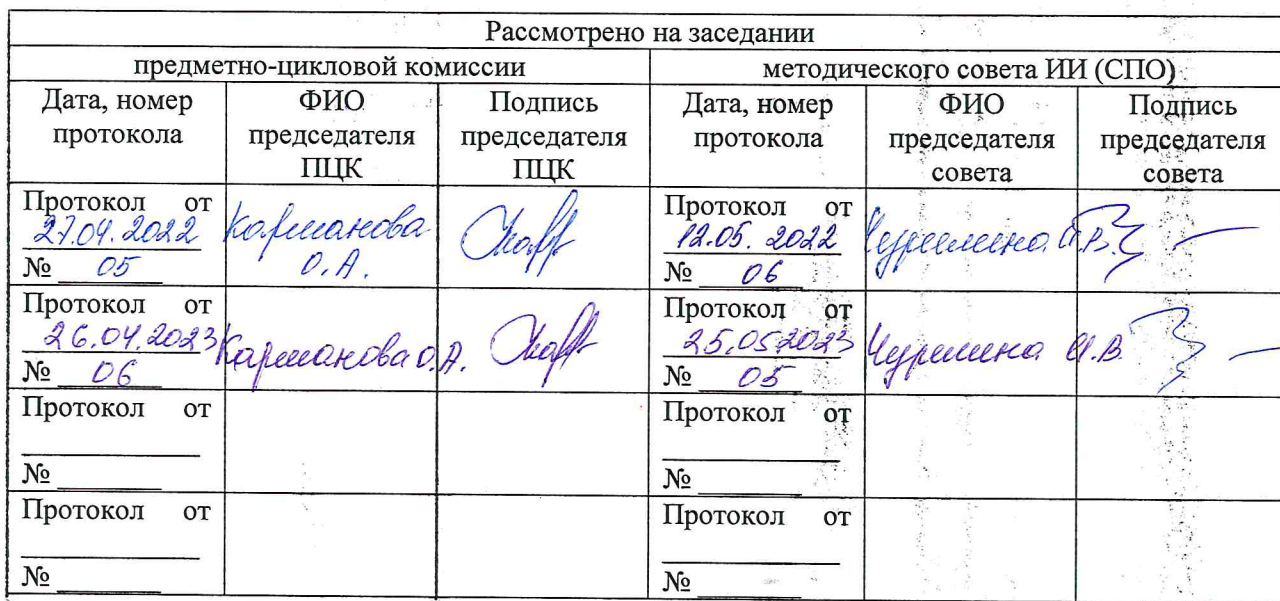 Рассмотрено на заседании
предметно-цикловой комиссии
методического совета ИИ (СПО)
Дата, номер
протокола
ФИО
председателя
ПЦК
Подпись
председателя
ПЦК
Дата, номер
протокола
ФИО
председателя
совета
Подпись
председателя
совета
Протокол от
27.04.2022
№ 05
Карманова
О.А.
Протокол от
12.05.2022
№ 06
Протокол от
26.04.2023
№ 06
Карманова О.А.
Протокол от
25.05.2023
№ 05
Протокол от
№
Протокол от
№
Протокол от
№
Протокол от
№